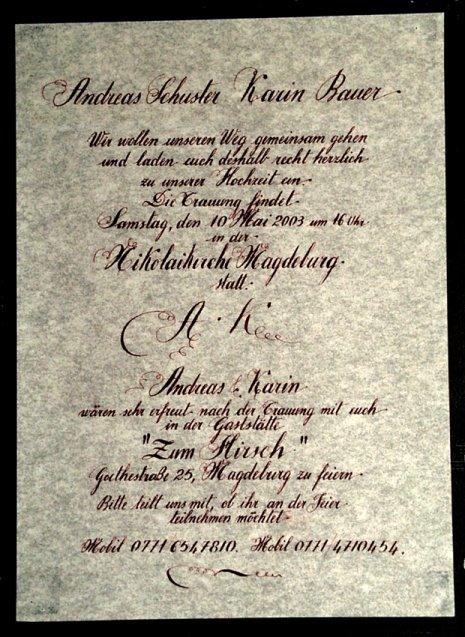 Andreas Schuster Karin Bauer
Wir wollen unseren Weg gemeinsam gehen
und laden euch deshalb recht herzlich
zu unserer Hochzeit ein.
Die Trauung findet
Samstag, den 10 Mai 2003 um 16 Uhr
in der
Nikolaikirche Magdeburg
statt.
A · K
Andreas & Karin
wären sehr erfreut nach der Trauung mit euch
in der Gaststätte
"Zum Hirsch"
Goethestraße 25, Magdeburg zu feiern
Bitte teilt uns mit, ob ihr an der Feier
teilnehmen möchtet
Mobil 0771 6547810. Mobil 0771 4710454.